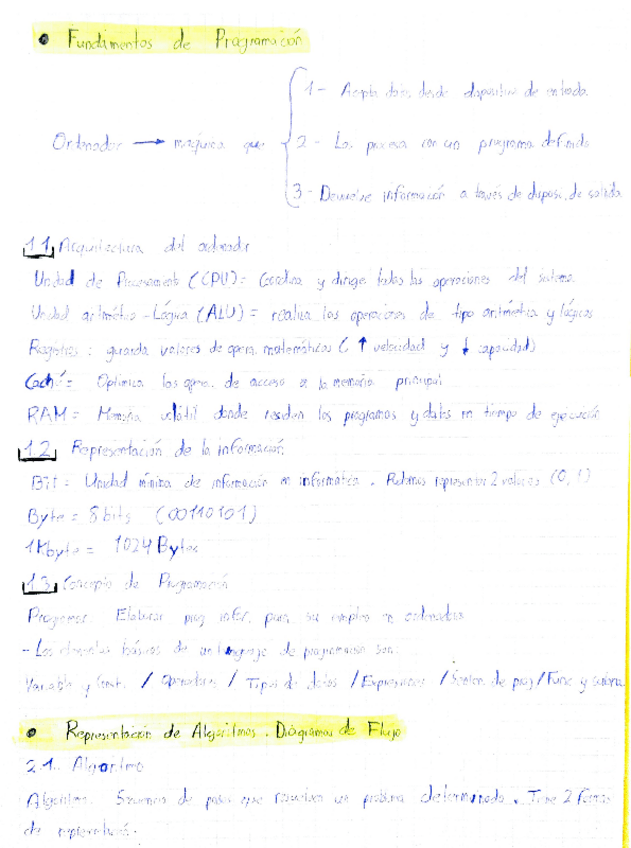 • Fundamentos de Programación
1- Acepta datos desde dispositivo de entrada
Ordenador → maquina que { 2- Los procesa con un programa definido
3- Devuelve información a través de disposi. de salida
1.1 Arquitectura del ordenador
Unidad de Procesamiento (CPU)= Coordina y dirige todas las operaciones del sistema
Unidad aritmético-Lógica (ALU)= realiza las operaciones de tipo aritmética y lógicas
Registros: guarda valores de opera. matemáticas (↑ velocidad y ↓ capacidad)
Caché= Optimiza las opera. de acceso a la memoria principal
RAM= Memoria volátil donde residen los programas y datos en tiempo de ejecución
1.2 Representación de la información
Bit= Unidad mínima de información en informática. Podemos representar 2 valores (0,1)
Byte= 8 bits (00110101)
1Kbyte= 1024 Bytes
1.3 Concepto de Programación
Programar: Elaborar prog. infor. para su empleo en ordenadores
- Los elementos básicos de un lenguaje de programación son:
Variable y Const. / Operadores / Tipos de datos / Expresiones / de prog / Func y
• Representación de Algoritmos. Diagramas de Flujo
2.1. Algoritmo
Algoritmo: Secuencia de pasos que resuelven un problema determinado. Tiene 2 formas
de